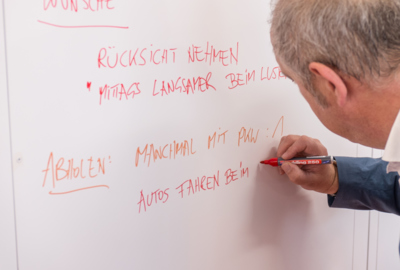 WÜNSCHE
RÜCKSICHT NEHMEN
• MITTAGS LANGSAMER BEIM
ABHOLEN: MANCHMAL MIT PKW: 1
AUTOS FAHREN BEIM